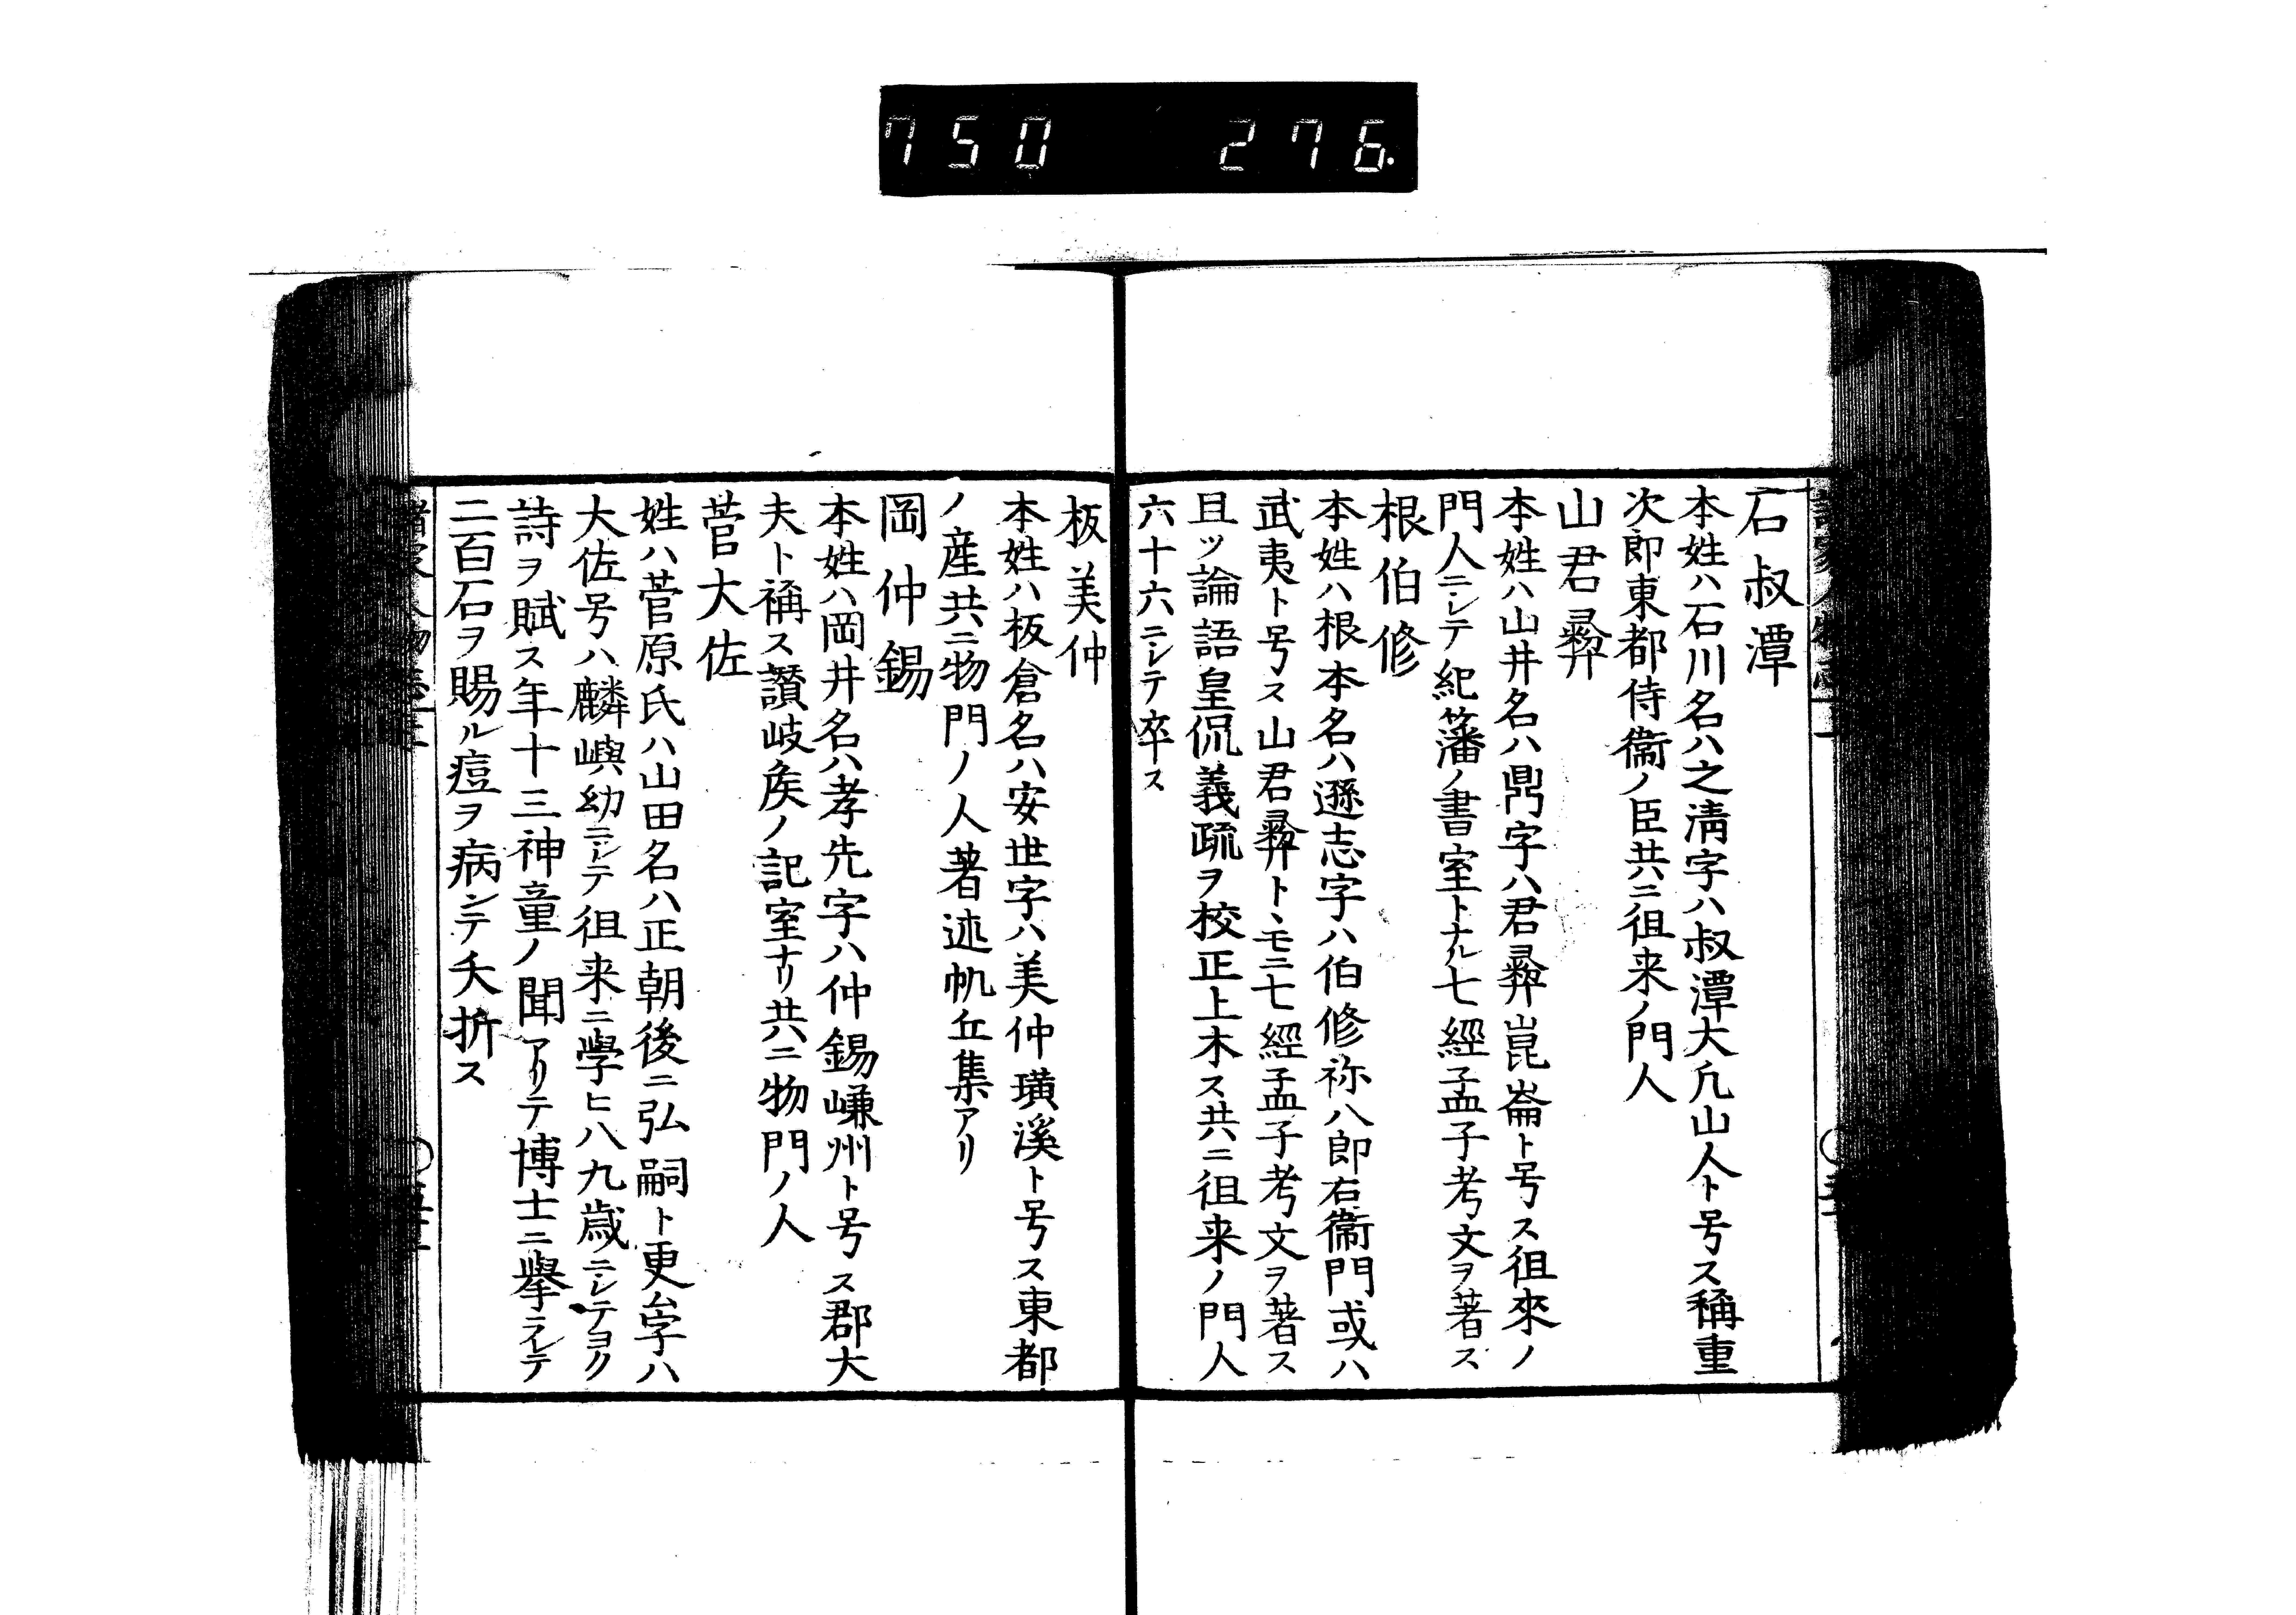 750 276.
石叔潭
本姓ハ石川名ハ之清字ハ叔潭大凢山人ト号ス稱重
次郎東都侍衞ノ臣共ニ徂来ノ門人
山君彛
本姓ハ山井名ハ鼎字ハ君彛崑崙ト号ス徂來ノ
門人ニシテ紀藩ノ書室トナル七經孟子考文ヲ著ス
根伯修
本姓ハ根本名ハ遜志字ハ伯修祢八郎右衞門或ハ
武夷ト号ス山君彛トヽモニ七經孟子考文ヲ著ス
且ツ論語皇侃義疏ヲ校正上木ス共ニ徂来ノ門人
六十六ニシテ卒ス
板美仲
本姓ハ板倉名ハ安世字ハ美仲璜溪ト号ス東都
ノ産共ニ物門ノ人著述帆丘集アリ
岡仲錫
本姓ハ岡井名ハ孝先字ハ仲錫嵰州ト号ス郡大
夫ト稱ス讃岐矦ノ記室ナリ共ニ物門ノ人
菅大佐
姓ハ菅原氏ハ山田名ハ正朝後ニ弘嗣ト更ム字ハ
大佐号ハ麟嶼幼ニシテ徂来ニ學ヒ八九歳ニシテヨク
詩ヲ賦ス年十三神童ノ聞アリテ博士ニ擧ラレテ
二百石ヲ賜ル痘ヲ病シテ夭折ス